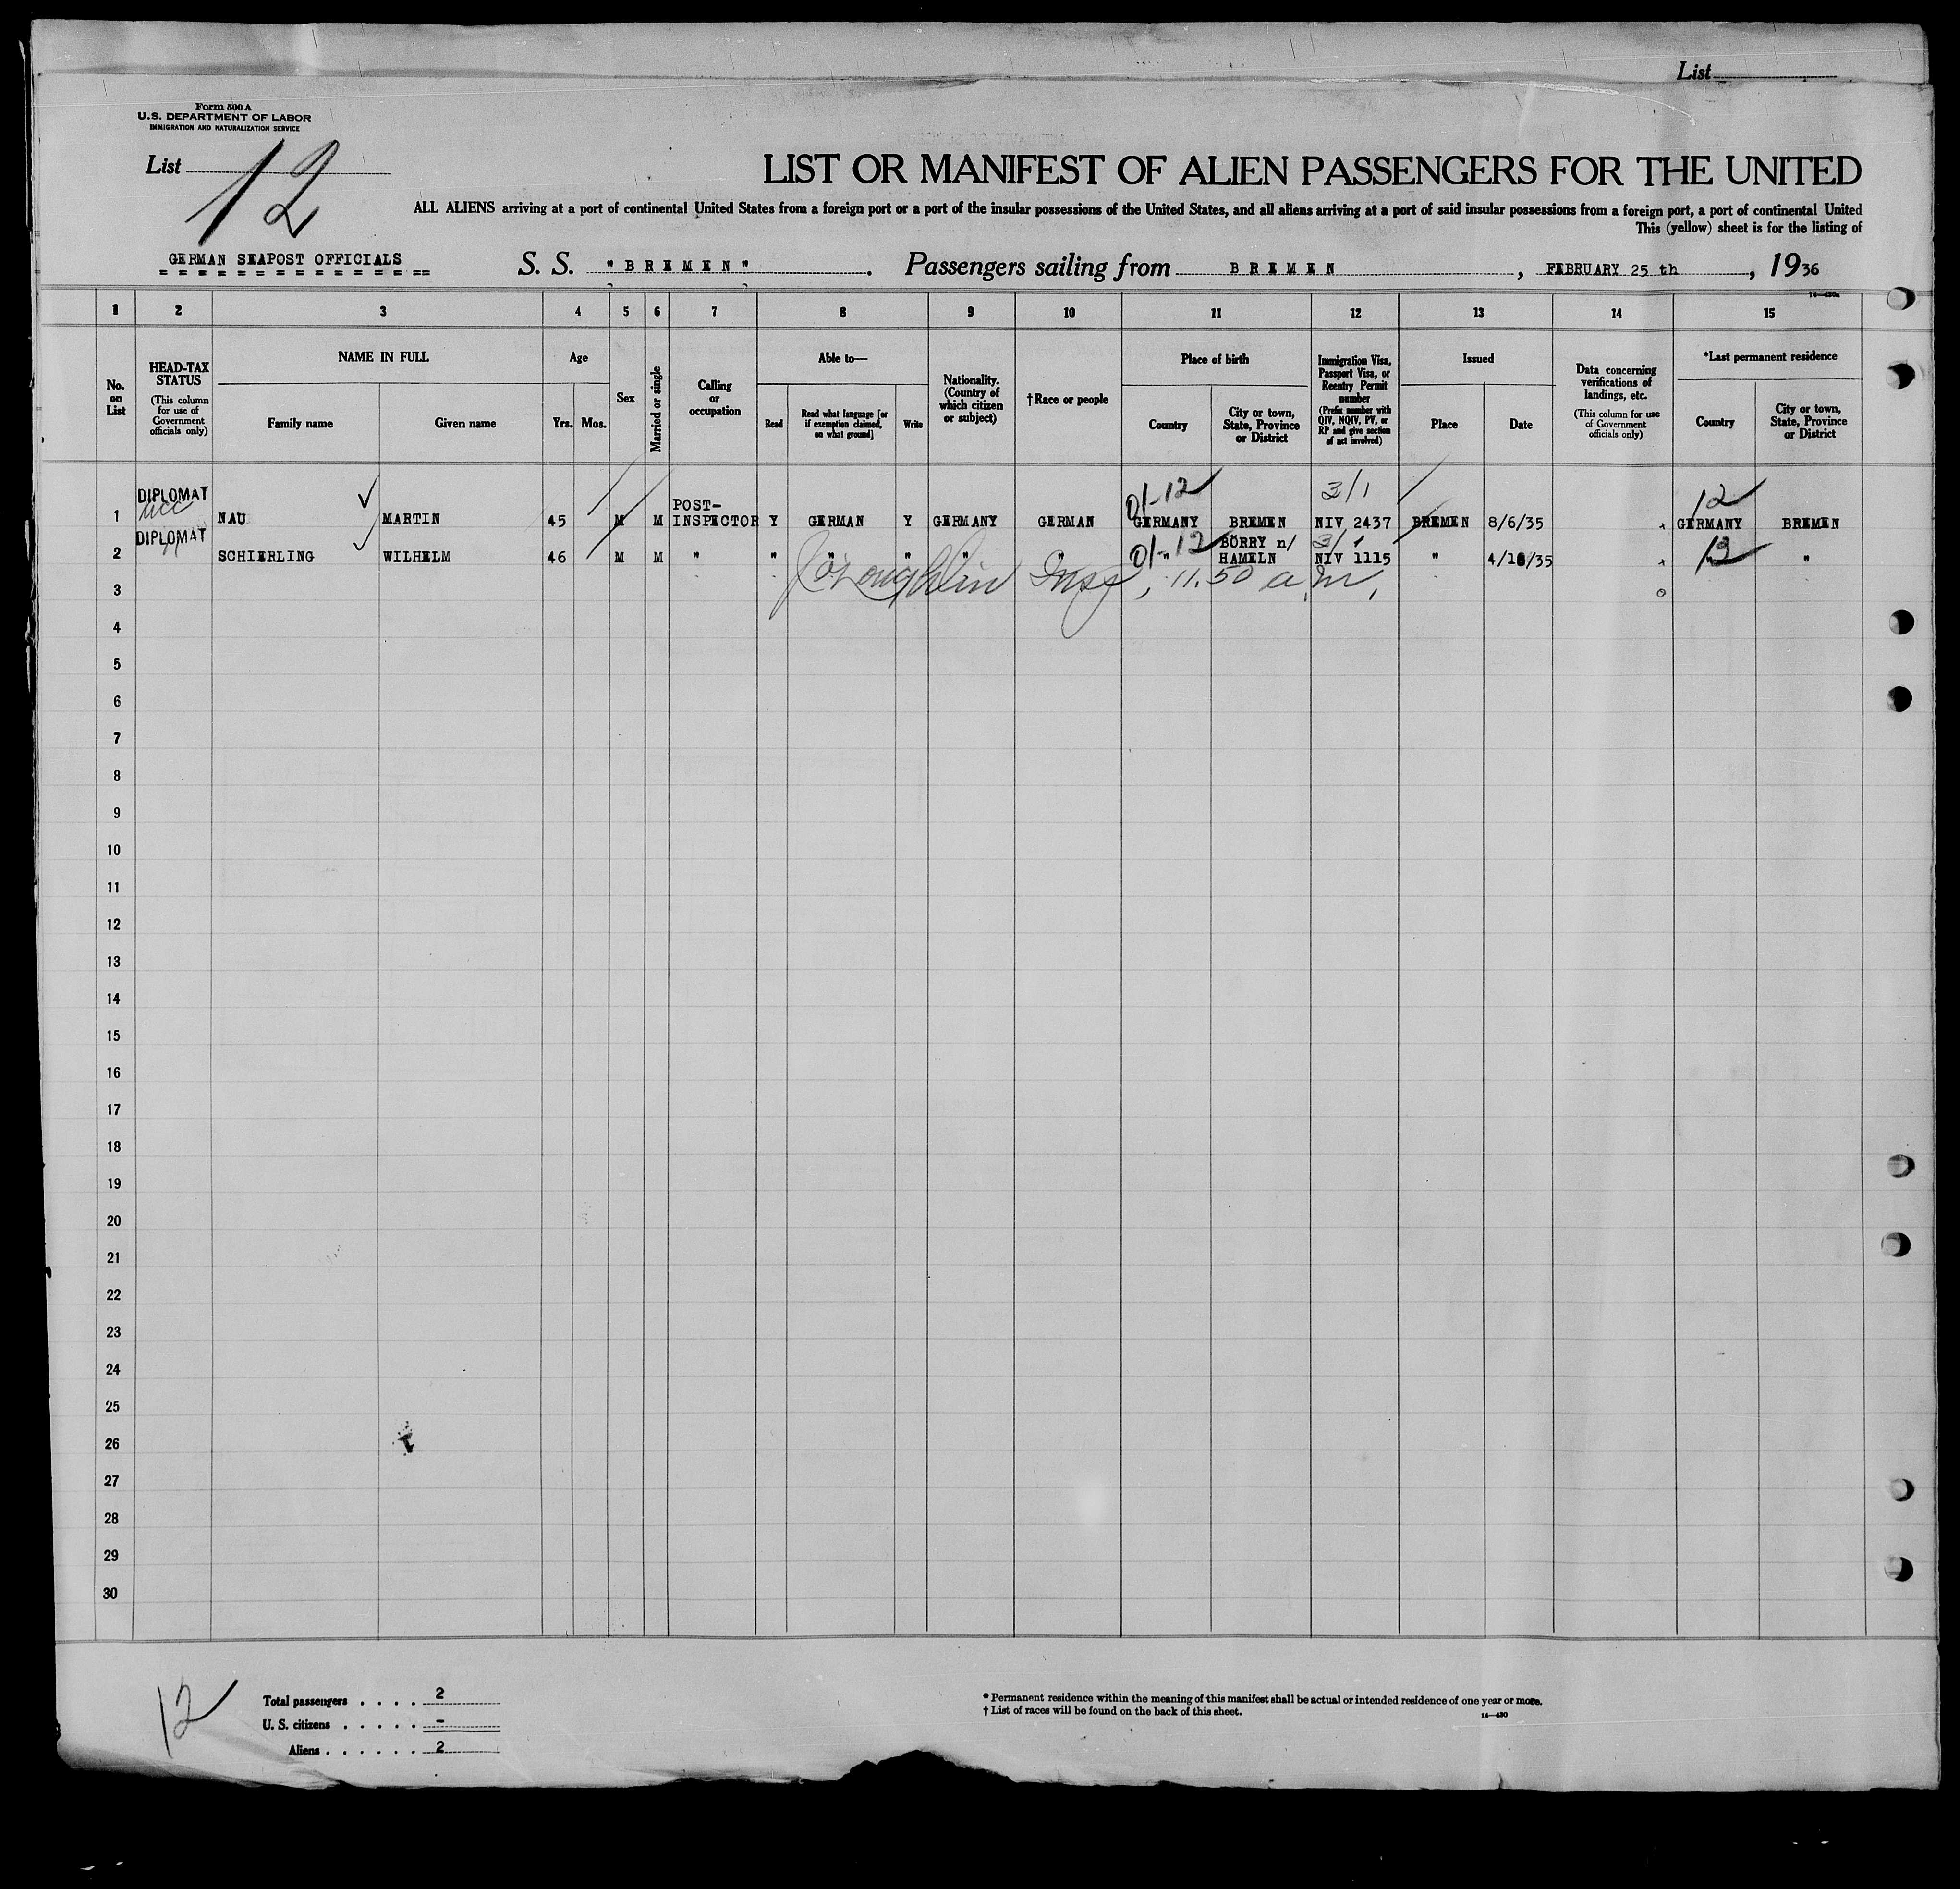 List
Form 500 A
U.S. DEPARTMENT OF LABOR
IMMIGRATION AND NATURALIZATION SERVICE
List 12
LIST OR MANIFEST OF ALIEN PASSENGERS FOR THE UNITED
ALL ALIENS arriving at a port of continental United States from a foreign port or a port of the insular possessions of the United States, and all aliens arriving at a port of said insular possessions from a foreign port, a port of continental United
This (yellow) sheet is for the listing of
GERMAN SEAPOST OFFICIALS
S. S. "BREMEN". Passengers sailing from BREMEN, FEBRUARY 25 th, 1936
14—430a
1 2 3 4 5 6 7 8 9 10 11 12 13 14 15
No. on List
HEAD-TAX STATUS
(This column for use of Government officials only)
NAME IN FULL
Family name Given name
Age
Yrs. Mos.
Sex
Married or single
Calling or occupation
Able to—
Read
Read what language [or if exemption claimed, on what ground]
Write
Nationality. (Country of which citizen or subject)
†Race or people
Place of birth
Country
City or town, State, Province or District
Immigration Visa, Passport Visa, or Reentry Permit number
(Prefix number with QIV, NQIV, PV, or RP and give section of act involved)
Issued
Place Date
Data concerning verifications of landings, etc.
(This column for use of Government officials only)
*Last permanent residence
Country
City or town, State, Province or District
DIPLOMAT 01-12 3/1 12
1 NAU MARTIN 45 M M POST-INSPECTOR Y GERMAN Y GERMANY GERMAN GERMANY BREMEN NIV 2437 BREMEN 8/6/35 GERMANY BREMEN
DIPLOMAT 01-12 3/1 12
2 SCHIERLING WILHELM 46 M M " " " " " " " BÖRRY n/ HAMELN NIV 1115 " 4/18/35 " "
3 Insp, 11.50 a.m.
4
5
6
7
8
9
10
11
12
13
14
15
16
17
18
19
20
21
22
23
24
25
26
27
28
29
30
12
Total passengers . . . . 2
U. S. citizens . . . . . -
Aliens . . . . . . 2
* Permanent residence within the meaning of this manifest shall be actual or intended residence of one year or more.
† List of races will be found on the back of this sheet.
14—430